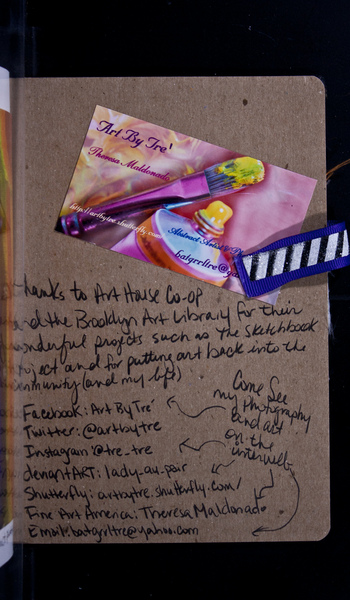 Art By Tre'
Theresa Maldonado
http://artbytre.shutterfly.com
Abstract Artist &
batgrrltre@ya
thanks to Art House Co-op
and the Brooklyn Art Library for their
wonderful projects such as The Sketchbook
Project and for putting art back into the
community (and my life)
Come See
my Photography
and art
on the
interweb
Facebook: Art By Tré
Twitter: @artbytre
Instagram @tre_tre
deviantART: lady-au-pair
Shutterfly: artbytre.shutterfly.com/
Fine Art America: Theresa Maldonado
Email: batgrrltre@yahoo.com